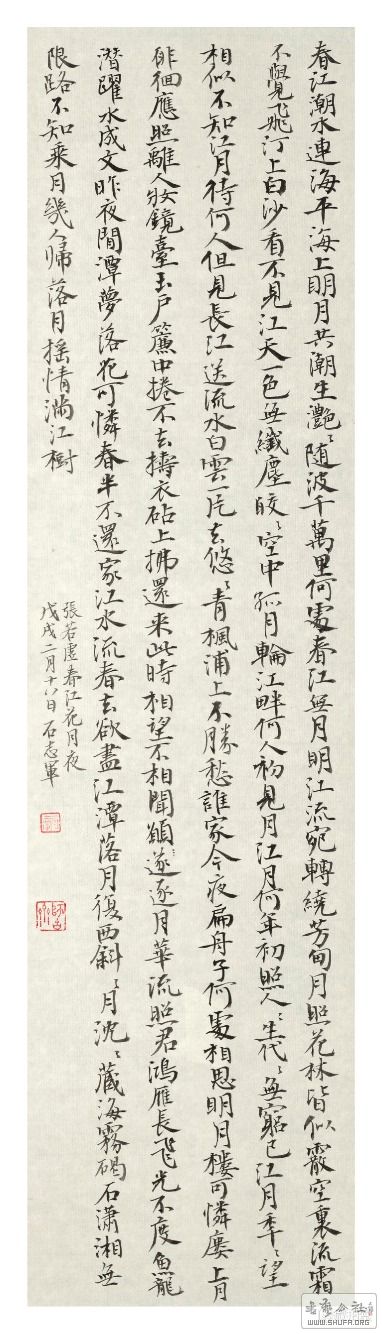 春江潮水連海平海上明月共潮生灩〻隨波千萬里何處春江無月明江流宛轉繞芳甸月照花林皆似霰空裏流霜
不覺飛汀上白沙看不見江天一色無纖塵皎〻空中孤月輪江畔何人初見月江月何年初照人〻生代〻無窮已江月年〻望
相似不知江月待何人但見長江送流水白雲一片去悠〻青楓浦上不勝愁誰家今夜扁舟子何處相思明月樓可憐廔上月
徘徊應照離人妝鏡臺玉戶簾中捲不去擣衣砧上拂還来此時相望不相聞願遂逐月華流照君鴻雁長飛光不度魚龍
潛躍水成文昨夜閒潭夢落花可憐春半不還家江水流春去欲盡江潭落月復西斜〻月沈〻藏海霧碣石瀟湘無
限路不知乘月幾人歸落月搖情滿江樹
張若虛春江花月夜
戊戌二月十八日石志軍
WWW.SHUFA.ORG